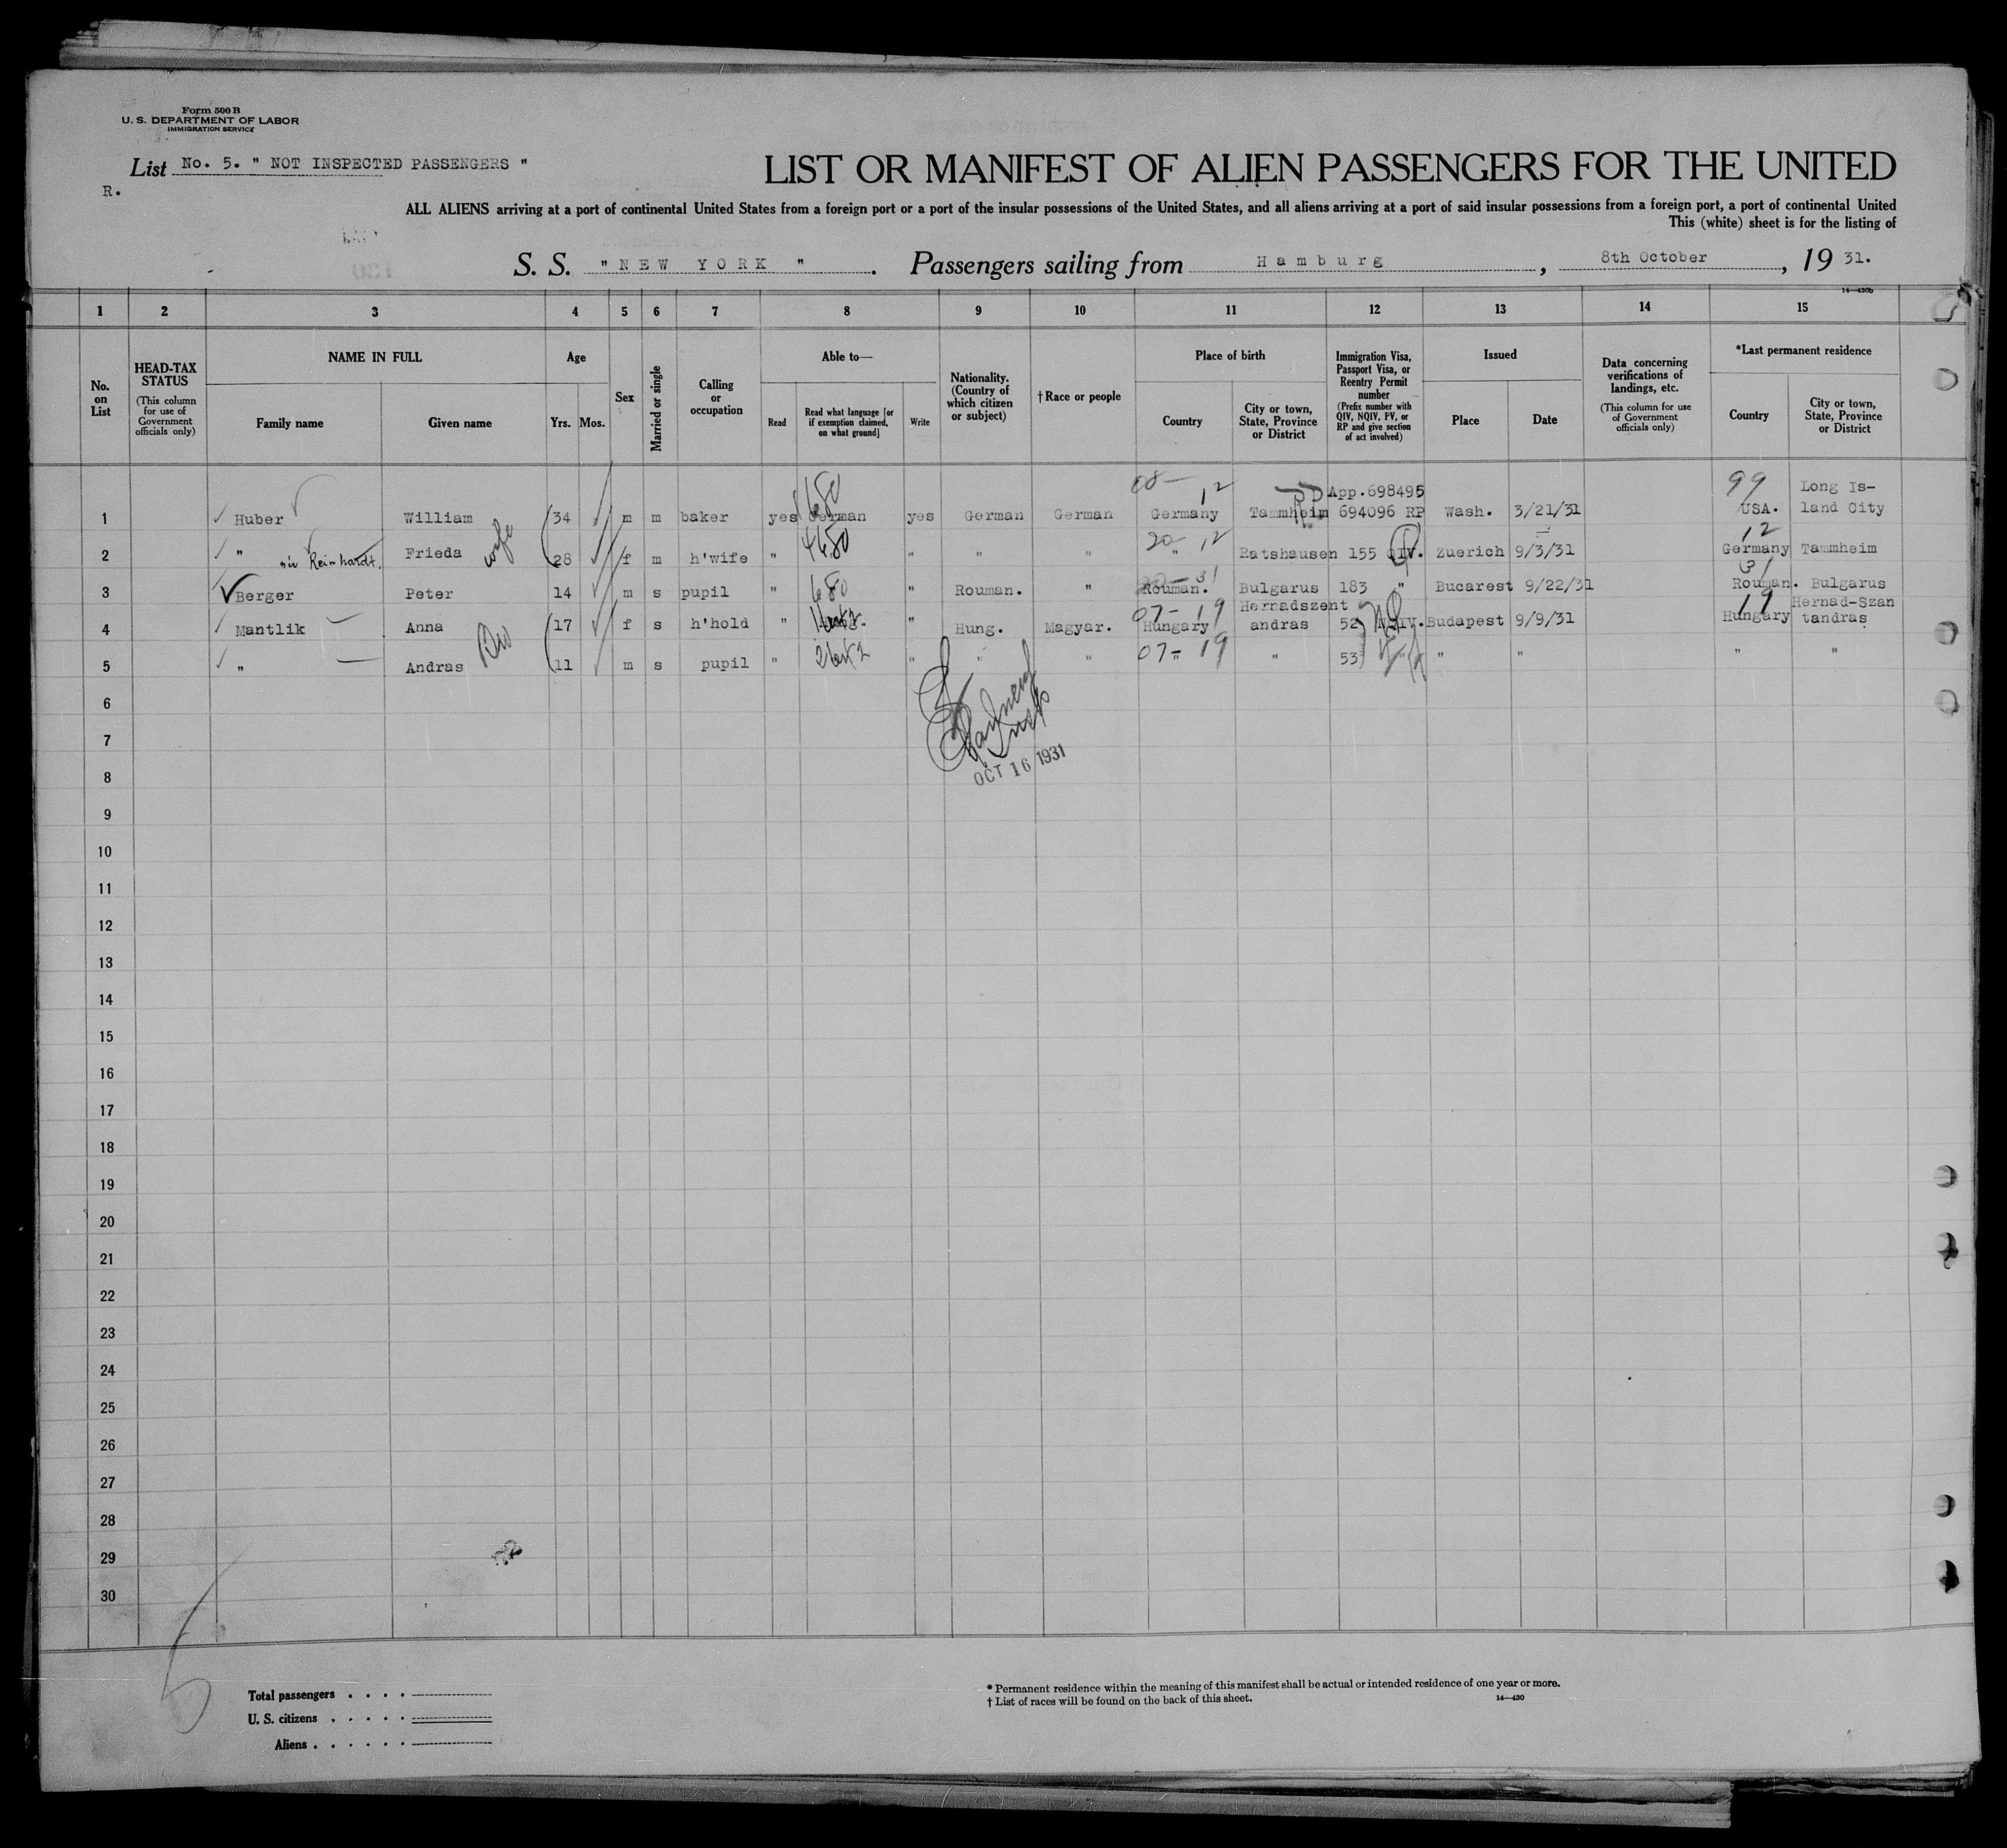 Form 500 B
U. S. DEPARTMENT OF LABOR
IMMIGRATION SERVICE
List No. 5. " NOT INSPECTED PASSENGERS "
R.
LIST OR MANIFEST OF ALIEN PASSENGERS FOR THE UNITED
ALL ALIENS arriving at a port of continental United States from a foreign port or a port of the insular possessions of the United States, and all aliens arriving at a port of said insular possessions from a foreign port, a port of continental United
This (white) sheet is for the listing of
S. S. " NEW YORK " . Passengers sailing from Hamburg , 8th October , 19 31.
14—430b
1 2 3 4 5 6 7 8 9 10 11 12 13 14 15
No. on List
HEAD-TAX STATUS
(This column for use of Government officials only)
NAME IN FULL
Family name Given name
Age
Yrs. Mos.
Sex
Married or single
Calling or occupation
Able to—
Read Read what language [or if exemption claimed, on what ground] Write
Nationality. (Country of which citizen or subject)
† Race or people
Place of birth
Country City or town, State, Province or District
Immigration Visa, Passport Visa, or Reentry Permit number
(Prefix number with QIV, NQIV, PV, or RP and give section of act involved)
Issued
Place Date
Data concerning verifications of landings, etc.
(This column for use of Government officials only)
*Last permanent residence
Country City or town, State, Province or District
08— 12 App.698495 99 Long Is-
1 Huber William 34 m m baker yes German yes German German Germany Tammheim 694096 RP Wash. 3/21/31 USA. land City
680
2 " Reinhardt. Frieda wife 28 f m h'wife " 4680 " " " 20 12 " Ratshausen 155 QIV. Zuerich 9/3/31 12 Germany Tammheim
3 Berger Peter 14 m s pupil " 680 " Rouman. " 31 Rouman. Bulgarus 183 " Bucarest 9/22/31 31 Rouman. Bulgarus
07— 19 Hernadszent 19 Hernad-Szan
4 Mantlik Anna 17 f s h'hold " " Hung. Magyar. Hungary andras 52 NQIV. Budapest 9/9/31 Hungary tandras
5 " Andras 11 m s pupil " " " " 07— 19 " " 53 " " " " "
6
7
OCT 16 1931
8
9
10
11
12
13
14
15
16
17
18
19
20
21
22
23
24
25
26
27
28
29
30
5
Total passengers . . . .
U. S. citizens . . . . .
Aliens . . . . . .
* Permanent residence within the meaning of this manifest shall be actual or intended residence of one year or more.
† List of races will be found on the back of this sheet.
14—430